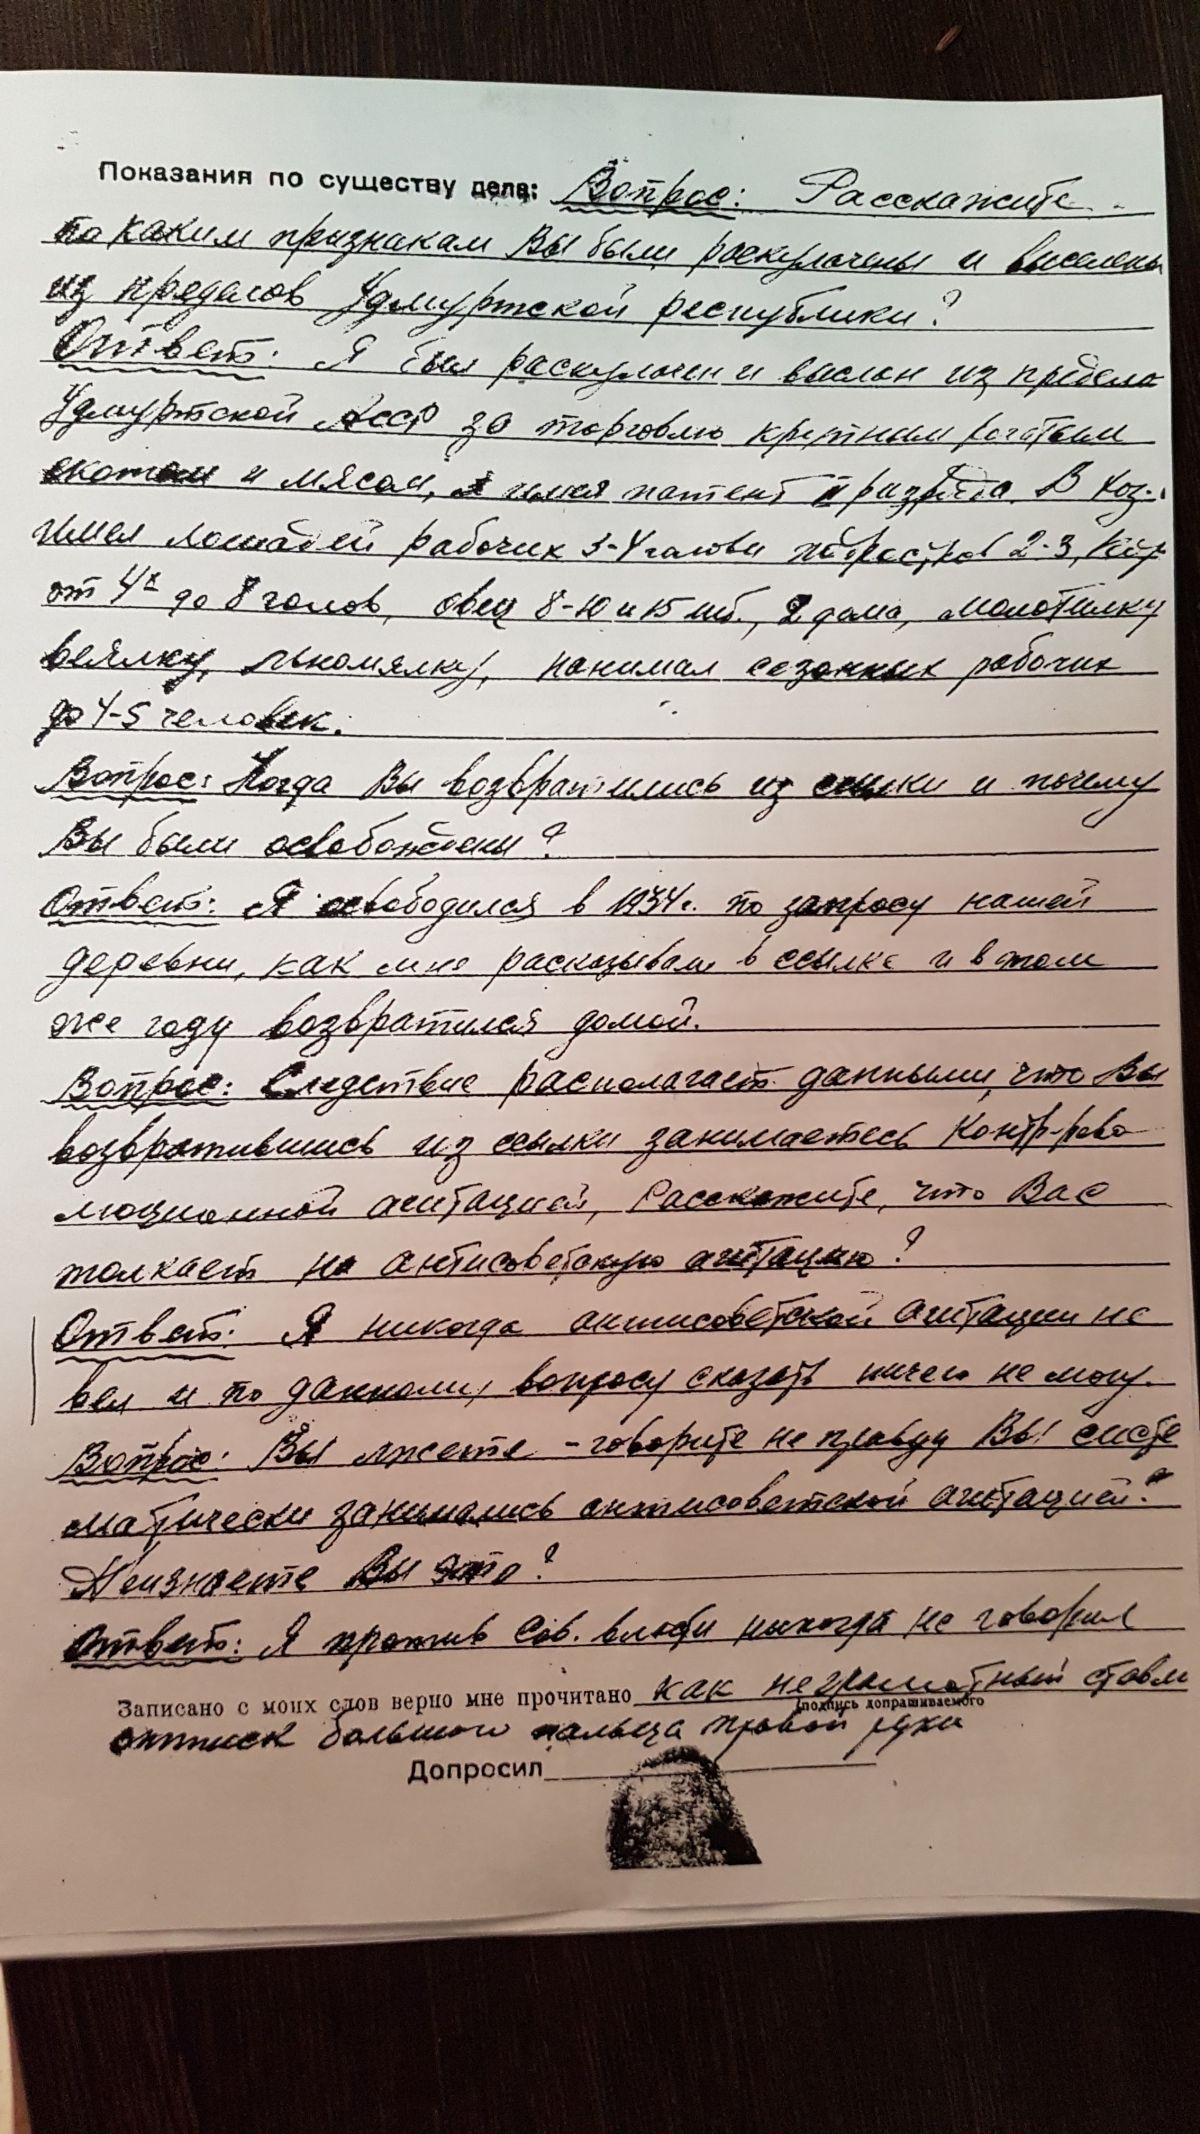 Показания по существу дела: Вопрос: Расскажите
по каким признакам Вы были раскулачены и выселены
из пределов Удмуртской республики?
Ответ: Я был раскулачен и выслан из предела
Удмуртской АССР за торговлю крупным рогатым
скотом и мясом, я имея патент разряда. В хоз.
имел лошадей рабочих 3-4 головы 2-3,
от 4х до 8 голов, овец 8-10 и 15 шт., 2 дома, молотилку
веялку, льномялку, нанимал сезонных рабочих
до 4-5 человек.
Вопрос: Когда Вы возвратились из ссылки и почему
Вы были освобождены?
Ответ: Я освободился в 1934 г. по запросу нашей
деревни, как мне рассказывали в ссылке и в том
же году возвратился домой.
Вопрос: Следствие располагает данными, что Вы
возвратившись из ссылки занимаетесь контр-рево
люционной агитацией, Расскажите, что Вас
толкает на антисоветскую агитацию?
Ответ: Я никогда антисоветской агитации не
вел и по данному вопросу сказать ничего не могу.
Вопрос: Вы лжете - говорите не правду Вы систе
матически занимались антисоветской агитацией?
Вы это?
Ответ: Я против Сов. власти никогда не говорил
Записано с моих слов верно мне прочитано как неграмотный ставлю
(подпись допрашиваемого
оттиск большого пальца правой руки
Допросил